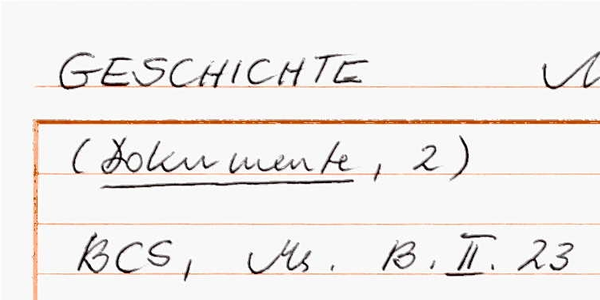 GESCHICHTE
(Dokumente, 2)
BCS, Ms. B.II.23